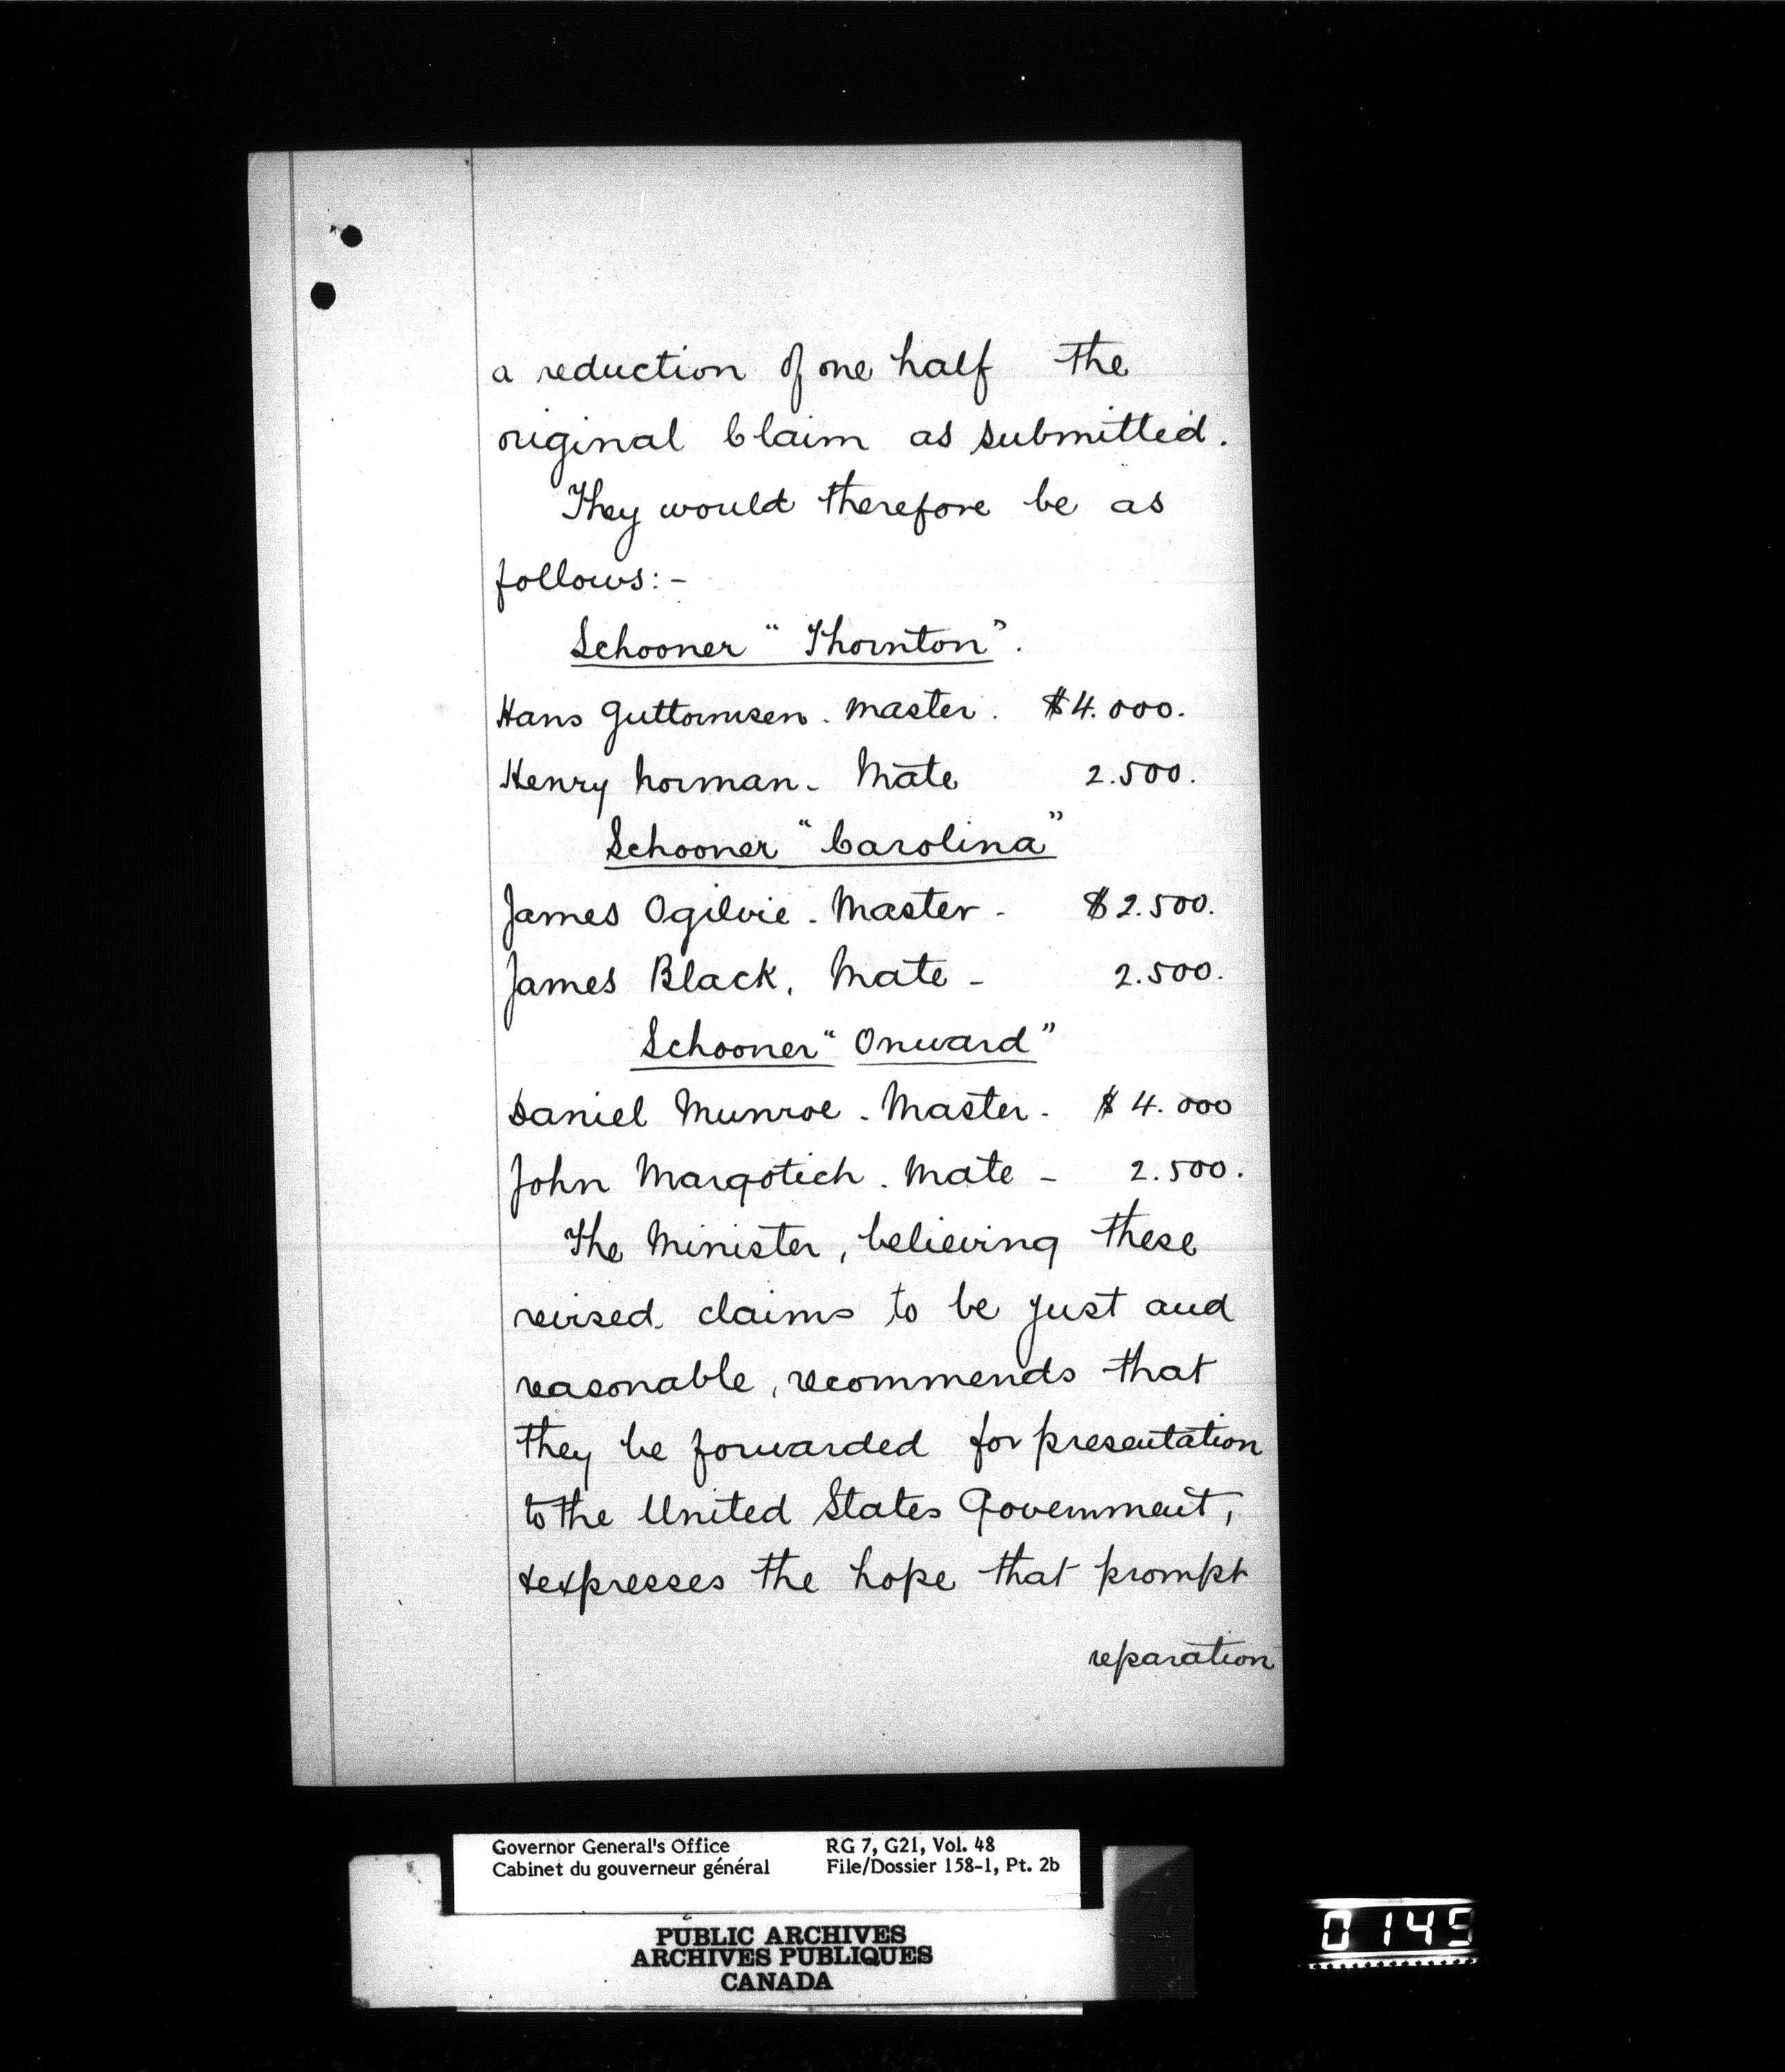 a reduction of one half the
original Claim as submitted.
They would therefore be as
follows:-
Schooner "Thornton".
Hans Guttormsen. Master. $4.000.
Henry Norman - Mate 2.500.
Schooner "Carolina"
James Ogilvie - Master - $2.500.
James Black, Mate - 2.500.
Schooner "Onward"
Daniel Munroe - Master - $4.000
John Margotich. Mate - 2.500.
The Minister, believing these
revised claims to be just and
reasonable, recommends that
they be forwarded for presentation
to the United States Government,
& expresses the hope that prompt
reparation
Governor General's Office RG 7, G21, Vol. 48
Cabinet du gouverneur général File/Dossier 158-1, Pt. 2b
PUBLIC ARCHIVES
ARCHIVES PUBLIQUES
CANADA
0145